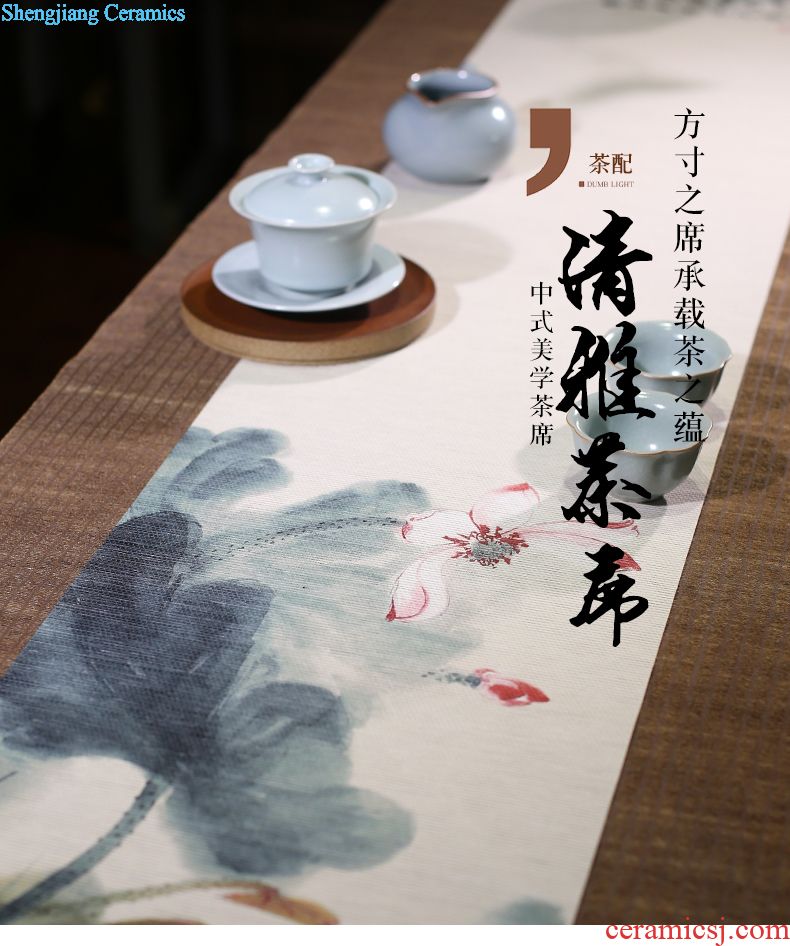 Shengjiang Ceramics
茶配
DUMB LIGHT
方寸之席承载茶之蕴
清雅茶席
中式美学茶席
ceramicsj.com